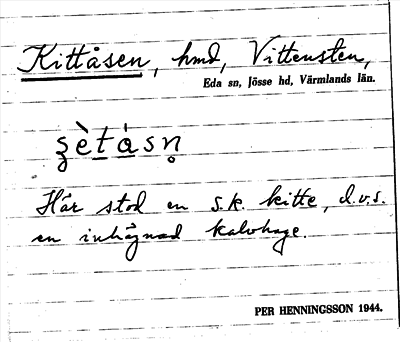 Kittåsen, hmd, Vittensten,
Eda sn, Jösse hd, Värmlands län.
Här stod en s.k. kitte, d.v.s.
en inhägnad kalvhage.
PER HENNINGSSON 1944.